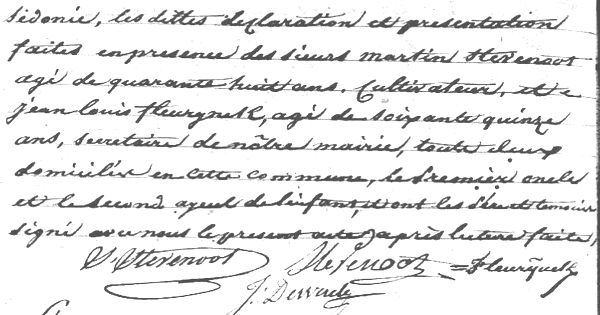 sédonie, les dittes déclaration et présentation
faites en presence des sieurs martin Stevenoot
agé de quarante huit ans, Cultivateur, et
jean louis fleurynck, agé de soixante quinze
ans, secretaire de nôtre mairie, toute deux
domiciliés en cette commune, le premier oncle
et le second ayeul de l'enfant, et ont les père et temoins
signé avec nous le present acte, après lecture faite,
S. Stevenoot Stevenoot